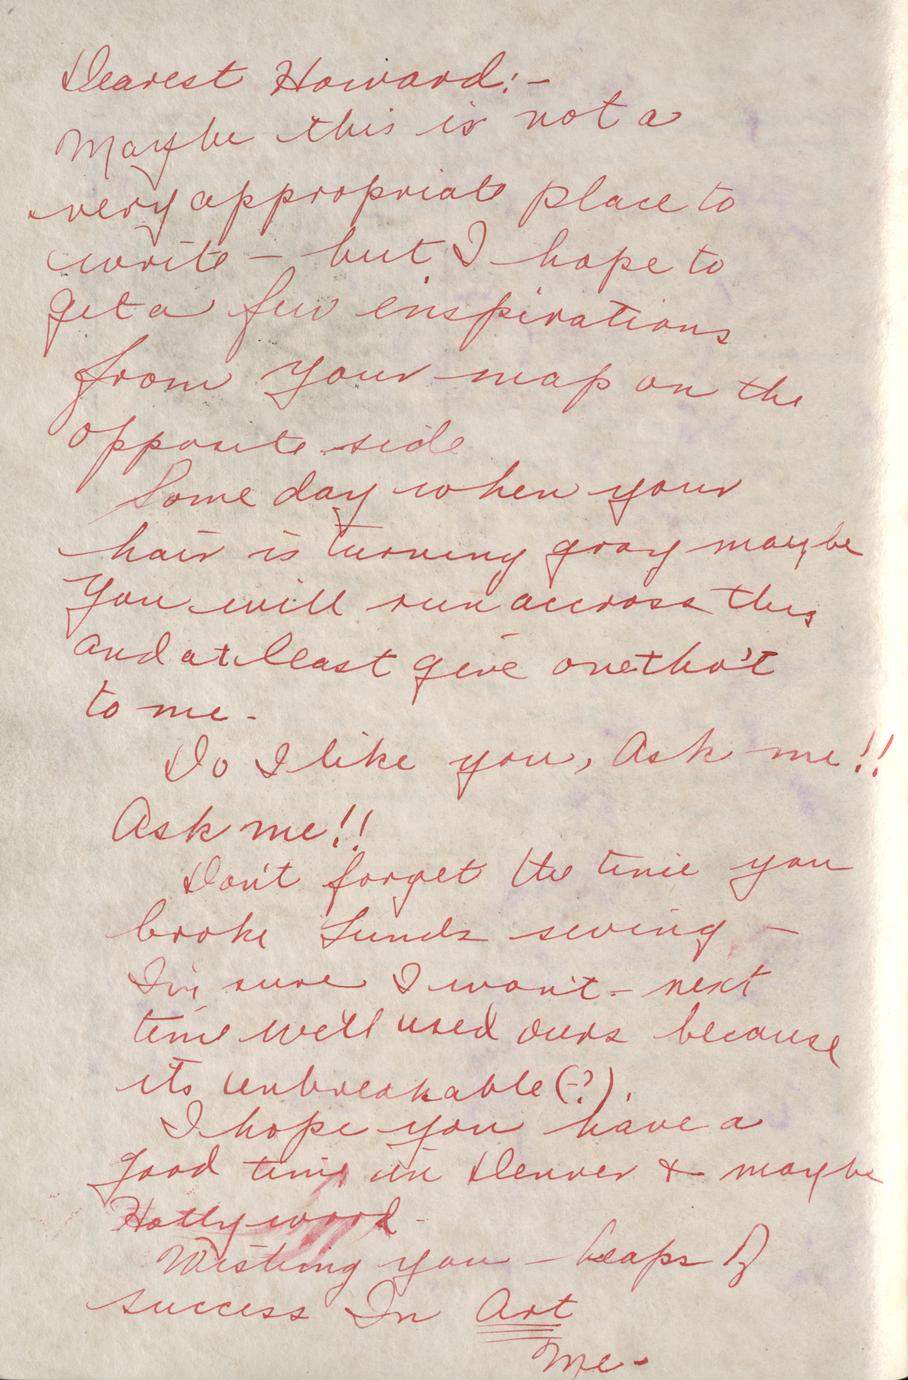 Dearest Howard:-
Maybe this is not a
very appropriate place to
write - but I hope to
get a few inspirations
from your map on the
opposite side
Some day when your
hair is turning gray maybe
you will run accross this
and at least give one tho't
to me.
Do I like you, Ask me!!
Ask me!!
Don't forget the time you
broke Lunds swing -
I'm sure I won't - next
time we'll used ours because
its unbreakable (?).
I hope you have a
good time in Denver & maybe
Hollywood.
Wishing you - heaps of
success In Art
Me-